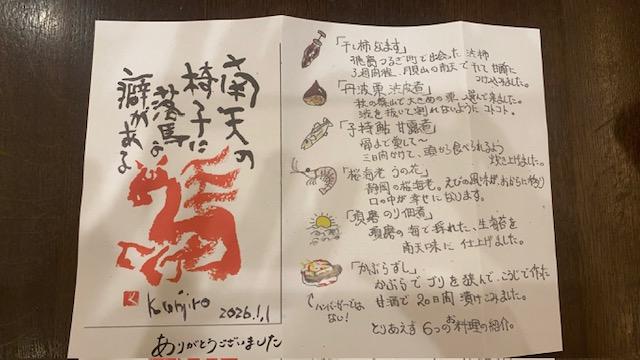 南天の
椅子に
落馬の
癖がある
Kunjiro
2026.1.1
ありがとうございました
「干し柿なます」
徳島つるぎ町で出会った渋柿
3週間程、月見山の南天で干して甘酢に
つけてみました。
「丹波栗渋皮煮」
秋の篠山で大きめの栗、選んで来ました。
渋を抜いて割れないようにコトコト。
「子持鮎 甘露煮」
三日間かけて、頭から食べられるよう
炊き上げました。
「桜海老 うの花」
静岡の桜海老。えびの風味が、おからに移り
口の中が幸せになります。
「須磨のり佃煮」
須磨の海で採れた、生海苔を
南天の味に仕上げました。
「かぶらずし」
かぶらでブリを挟んで、こうじで作た
甘酒で20日間漬けこみました。
ハンバーガーでは
ない!
とりあえず6つのお料理の紹介。